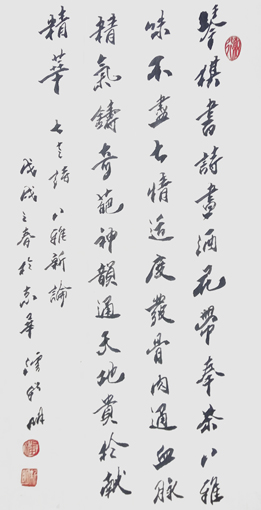 琴棋書詩畫酒花帶奉茶八雅
味不盡七情適度發骨肉通血脉
精氣鑄奇葩神韻通天地貴於献
精華
七言詩 八雅新論
戊戌之春於志華